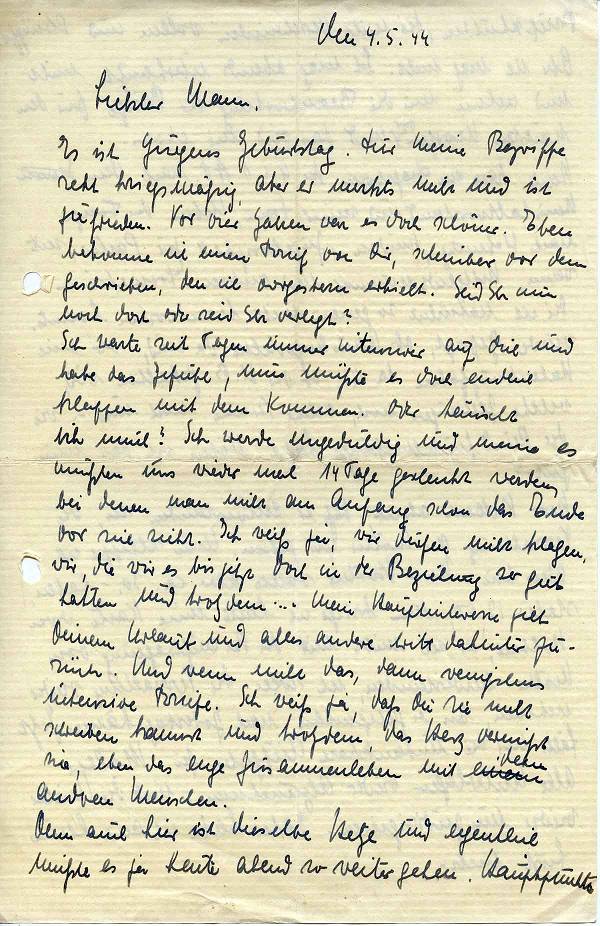 Den 4.5.44
Liebster Mann.
Es ist Jürgens Geburtstag. Für meine Begriffe
recht kriegsmäßig, aber er merkts nicht und ist
zufrieden. Vor vier Jahren war es doch schöner. Eben
bekomme ich einen Brief von Dir, schreiber vor dem
geschrieben, den ich vorgestern erhielt. Seid Ihr nun
noch dort oder seid Ihr verlegt?
Ich warte seit Tagen immer intensiv auf Dich und
habe das Gefühl, nun müßte es doch endlich
klappen mit dem Kommen. Oder täuscht
mich? Ich werde ungeduldig und meine es
müßten uns wieder mal 14 Tage geschenkt werden,
bei denen man nicht am Anfang schon das Ende
vor sich sieht. Ich weiß ja, wir dürfen nicht klagen,
wir, die wir es bis jetzt doch in der Beziehung so gut
hatten und trotzdem.... Mein Hauptinteresse gilt
Deinem Urlaub und alles andere tritt dahinter zu-
rück. Und wenn nicht das, dann wenigstens
intensive Briefe. Ich weiß ja, daß Du sie nicht
schreiben kannst und trotzdem, das Herz vermißt
sie, eben das enge Zusammenleben mit dem
andren Menschen.
Denn auch hier ist dieselbe Hetze und eigentlich
müßte es ja heute abend so weiter gehen. Hauptpunkte